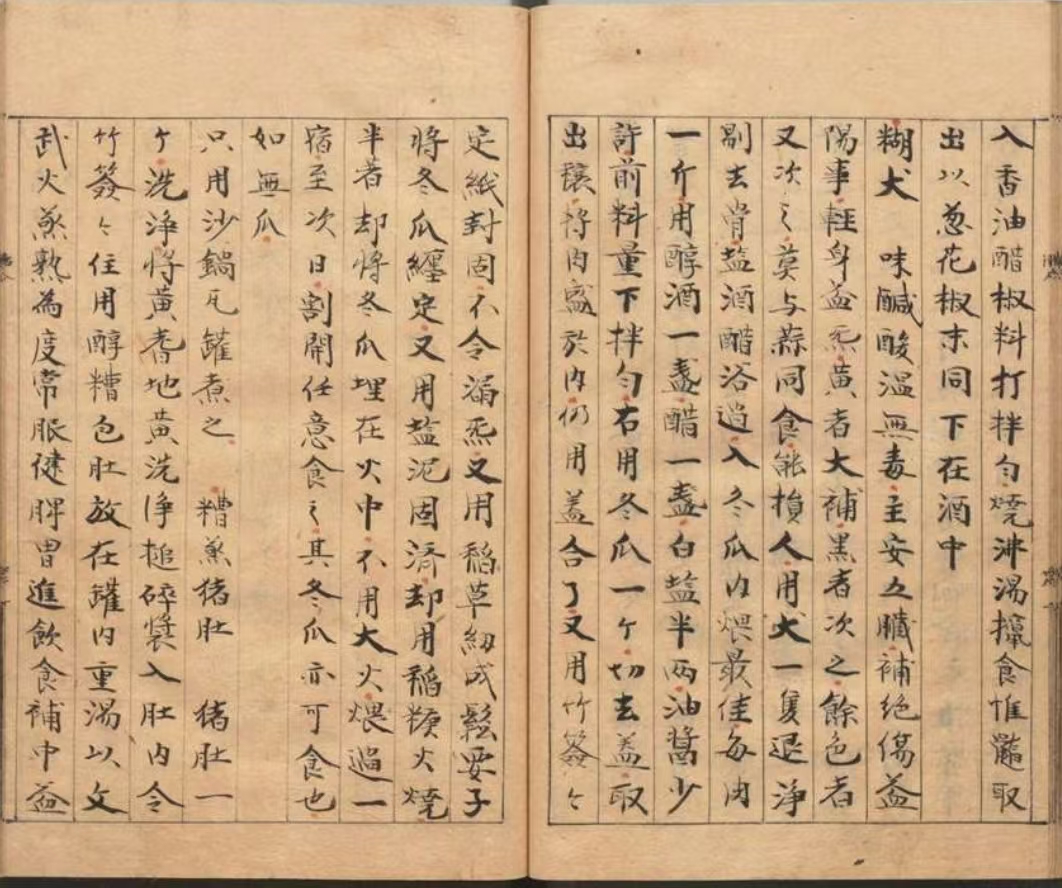 入香油醋椒料打拌勻燒沸湯攛食惟髓取
出以葱花椒末同下在酒中
糊犬　味鹹酸溫無毒主安五臟補絕傷益
陽事輕身益炁黃者大補黑者次之餘色者
又次之莫与蒜同食能損人用犬一隻退淨
剔去骨盐酒醋浴過入冬瓜内煨最佳每肉
一斤用醇酒一盞醋一盞白盐半两油醬少
許前料量下拌勻右用冬瓜一个切去盖取
出穰将肉盛於内仍用盖合了又用竹簽々
定紙封固不令漏炁又用稻草絪成鬆要子
将冬瓜纏定又用盐泥固济却用稻糠火燒
半着却将冬瓜埋在火中不用大火煨過一
宿至次日割開任意食之其冬瓜亦可食也
如無瓜
只用沙鍋瓦罐煮之　糟蒸猪肚　猪肚一
个洗淨将黃耆地黃洗淨搥碎裝入肚内令
竹簽々住用醇糟包肚放在罐内重湯以文
武火蒸熟為度常服健脾胃進飲食補中益